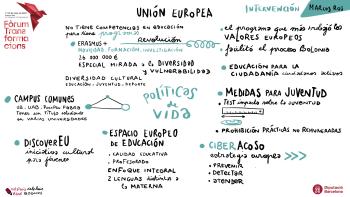 Fòrum
Trans
forma
cions
UNIÓN EUROPEA
INTERVENCIÓN
MARCOS ROS
NO TIENE COMPETENCIAS EN EDUCACIÓN
pero tiene programas
revolución
ERASMUS+
MOVILIDAD, FORMACIÓN, INVESTIGACIÓN
26 000 000 €
ESPECIAL MIRADA a la DIVERSIDAD
y VULNERABILIDADES
DIVERSIDAD CULTURAL
EDUCACIÓN, JUVENTUD, DEPORTE
el programa que más indujo los
VALORES EUROPEOS
facilitó el proceso Bolonia
EDUCACIÓN PARA LA
CIUDADANÍA ciudadanos activos
CAMPUS COMUNES
Tener un título estudiando
en varias universidades
DISCOVER EU
iniciativa cultural
para jóvenes
POLÍTICAS
de
VIDA
ESPACIO EUROPEO
DE EDUCACIÓN
CALIDAD EDUCATIVA
PROFESORADO
ENFOQUE INTEGRAL
2 LENGUAS distintas a
la MATERNA
MEDIDAS PARA JUVENTUD
TEST impacto sobre la juventud
PROHIBICIÓN PRÁCTICAS NO REMUNERADAS
CIBERACOSO
estrategia europea
PREVENIR
DETECTAR
ATENDER
Diputació
Barcelona